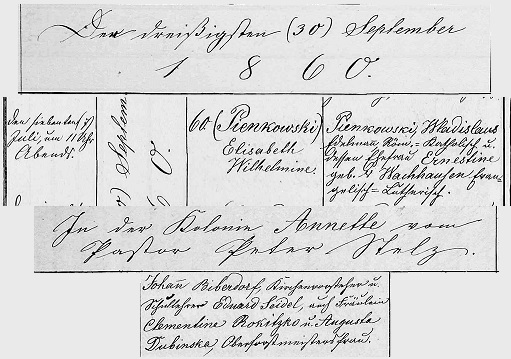 Den dreißigsten (30) September
1 8 6 0.
Den siebenten (7)
Juli, um 11 Uhr
Abends.
) Septem
0.
60. (Pienkowski)
Elisabeth
Wilhelmine.
Pienkowski, Wladislaus
Edelmann Röm.=Katholisch u.
dessen Ehefrau Ernestine
geb. Wachhausen Evan-
gelisch=Lutherisch.
In der Kolonie Annette vom
Pastor Peter Stelz.
Johann Biberdorf, Kirchenvorsteher u.
Schullehrer Eduard Seidel, auch Fräulein
Clementine Rokitzko u. Augusta
Dubinska, Oberforstmeistersfrau.